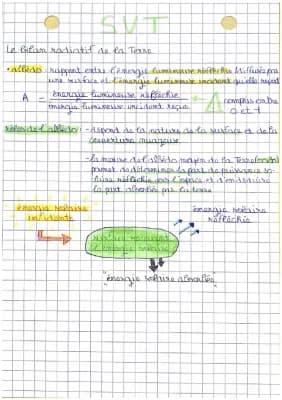 SVT
Le bilan radiatif de la Terre
• albédo : rapport entre l'énergie lumineuse réfléchie/diffusée par
une surface et l'énergie lumineuse incident qu'elle reçoit
A = énergie lumineuse réfléchie
énergie lumineuse incident reçue
A compris entre
0 et 1
de l'albédo : - dépend de la nature de la surface et de la
couverture nuageuse
- la mesure de l'albédo moyen de la Terre
permet de déterminer la part de puissance so-
laire réfléchie vers l'espace et d'en déduire
la part absorbée par la terre
énergie solaire
incidente
énergie solaire
réfléchie
l'énergie solaire
"énergie solaire absorbée"